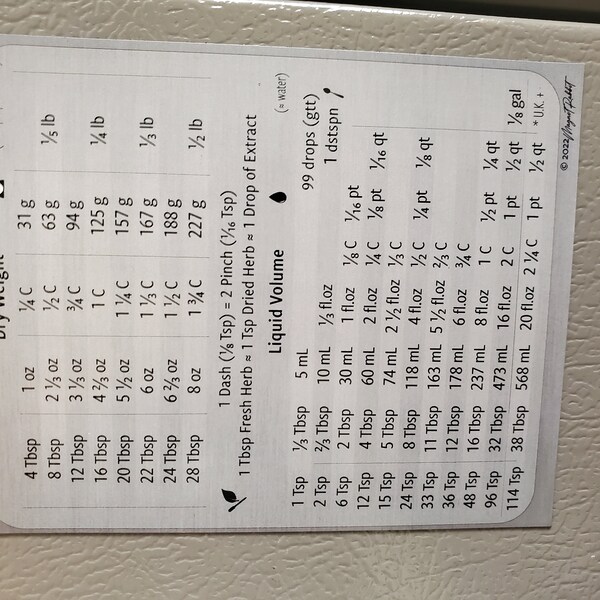 Dry Weight
4 Tbsp 1 oz ¼ C 31 g
8 Tbsp 2 ⅓ oz ½ C 63 g ⅕ lb
12 Tbsp 3 ⅓ oz ¾ C 94 g
16 Tbsp 4 ⅔ oz 1 C 125 g ¼ lb
20 Tbsp 5 ½ oz 1 ¼ C 157 g
22 Tbsp 6 oz 1 ⅓ C 167 g ⅓ lb
24 Tbsp 6 ⅔ oz 1 ½ C 188 g
28 Tbsp 8 oz 1 ¾ C 227 g ½ lb
1 Dash (⅛ Tsp) = 2 Pinch (1/16 Tsp)
1 Tbsp Fresh Herb ≈ 1 Tsp Dried Herb ≈ 1 Drop of Extract
Liquid Volume (≈ water)
1 Tsp ⅓ Tbsp 5 mL 99 drops (gtt)
2 Tsp ⅔ Tbsp 10 mL ⅓ fl.oz 1 dstspn
6 Tsp 2 Tbsp 30 mL 1 fl.oz ⅛ C 1/16 pt
12 Tsp 4 Tbsp 60 mL 2 fl.oz ¼ C ⅛ pt 1/16 qt
15 Tsp 5 Tbsp 74 mL 2 ½ fl.oz ⅓ C
24 Tsp 8 Tbsp 118 mL 4 fl.oz ½ C ¼ pt ⅛ qt
33 Tsp 11 Tbsp 163 mL 5 ½ fl.oz ⅔ C
36 Tsp 12 Tbsp 178 mL 6 fl.oz ¾ C
48 Tsp 16 Tbsp 237 mL 8 fl.oz 1 C ½ pt ¼ qt
96 Tsp 32 Tbsp 473 mL 16 fl.oz 2 C 1 pt ½ qt ⅛ gal
114 Tsp 38 Tbsp 568 mL 20 fl.oz 2 ¼ C 1 pt ½ qt * U.K. +
© 2022